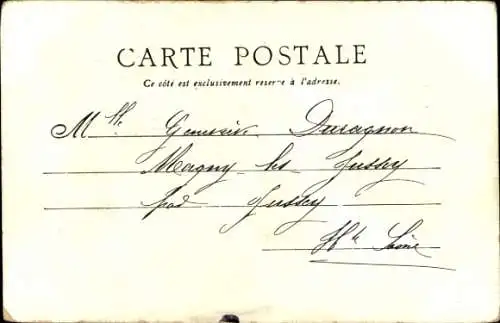 CARTE POSTALE
Ce côté est exclusivement reservé à l'adresse.
Mlle Geneviève Duragnon
Magny les Jussey
par Jussey
Hte Saône